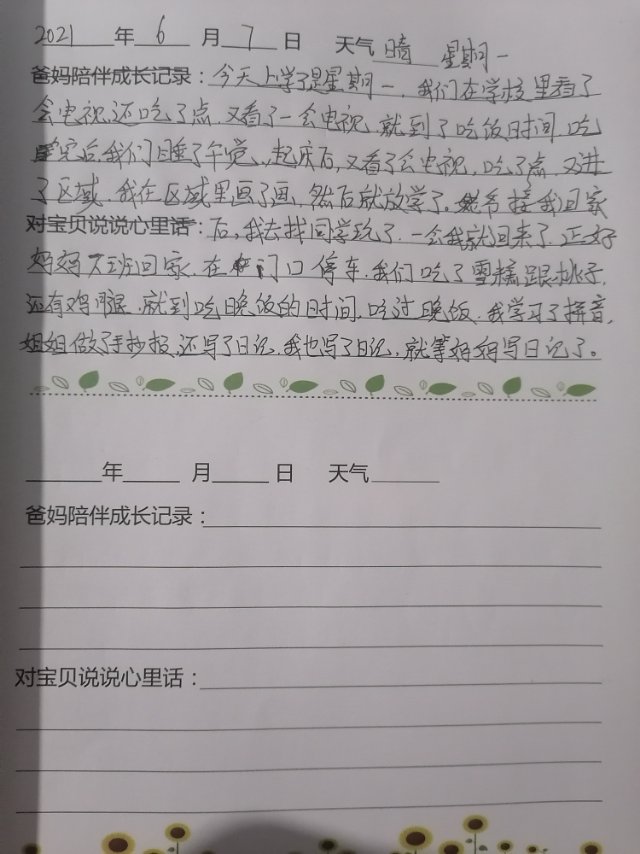 2021年 6 月 7 日 天气 晴 星期一
爸妈陪伴成长记录:今天上学了是星期一,我们在学校里看了
会电视,还吃了点,又看了一会电视,就到了吃饭时间,吃
完后,我们睡了午觉,起床后,又看了会电视,吃了点,又进
了区域,我在区域里画了画,然后就放学了。爷接我回家
对宝贝说说心里话:后,我去找同学玩了,一会我就回来了,正好
妈妈下班回家,在门口停车,我们吃了雪糕跟桃子,
还有鸡腿,就到吃晚饭的时间,吃过晚饭,我学习了拼音,
姐姐做了手抄报,还写了日记,我也写了日记,就等妈妈写日记了。
年 月 日 天气
爸妈陪伴成长记录:
对宝贝说说心里话: